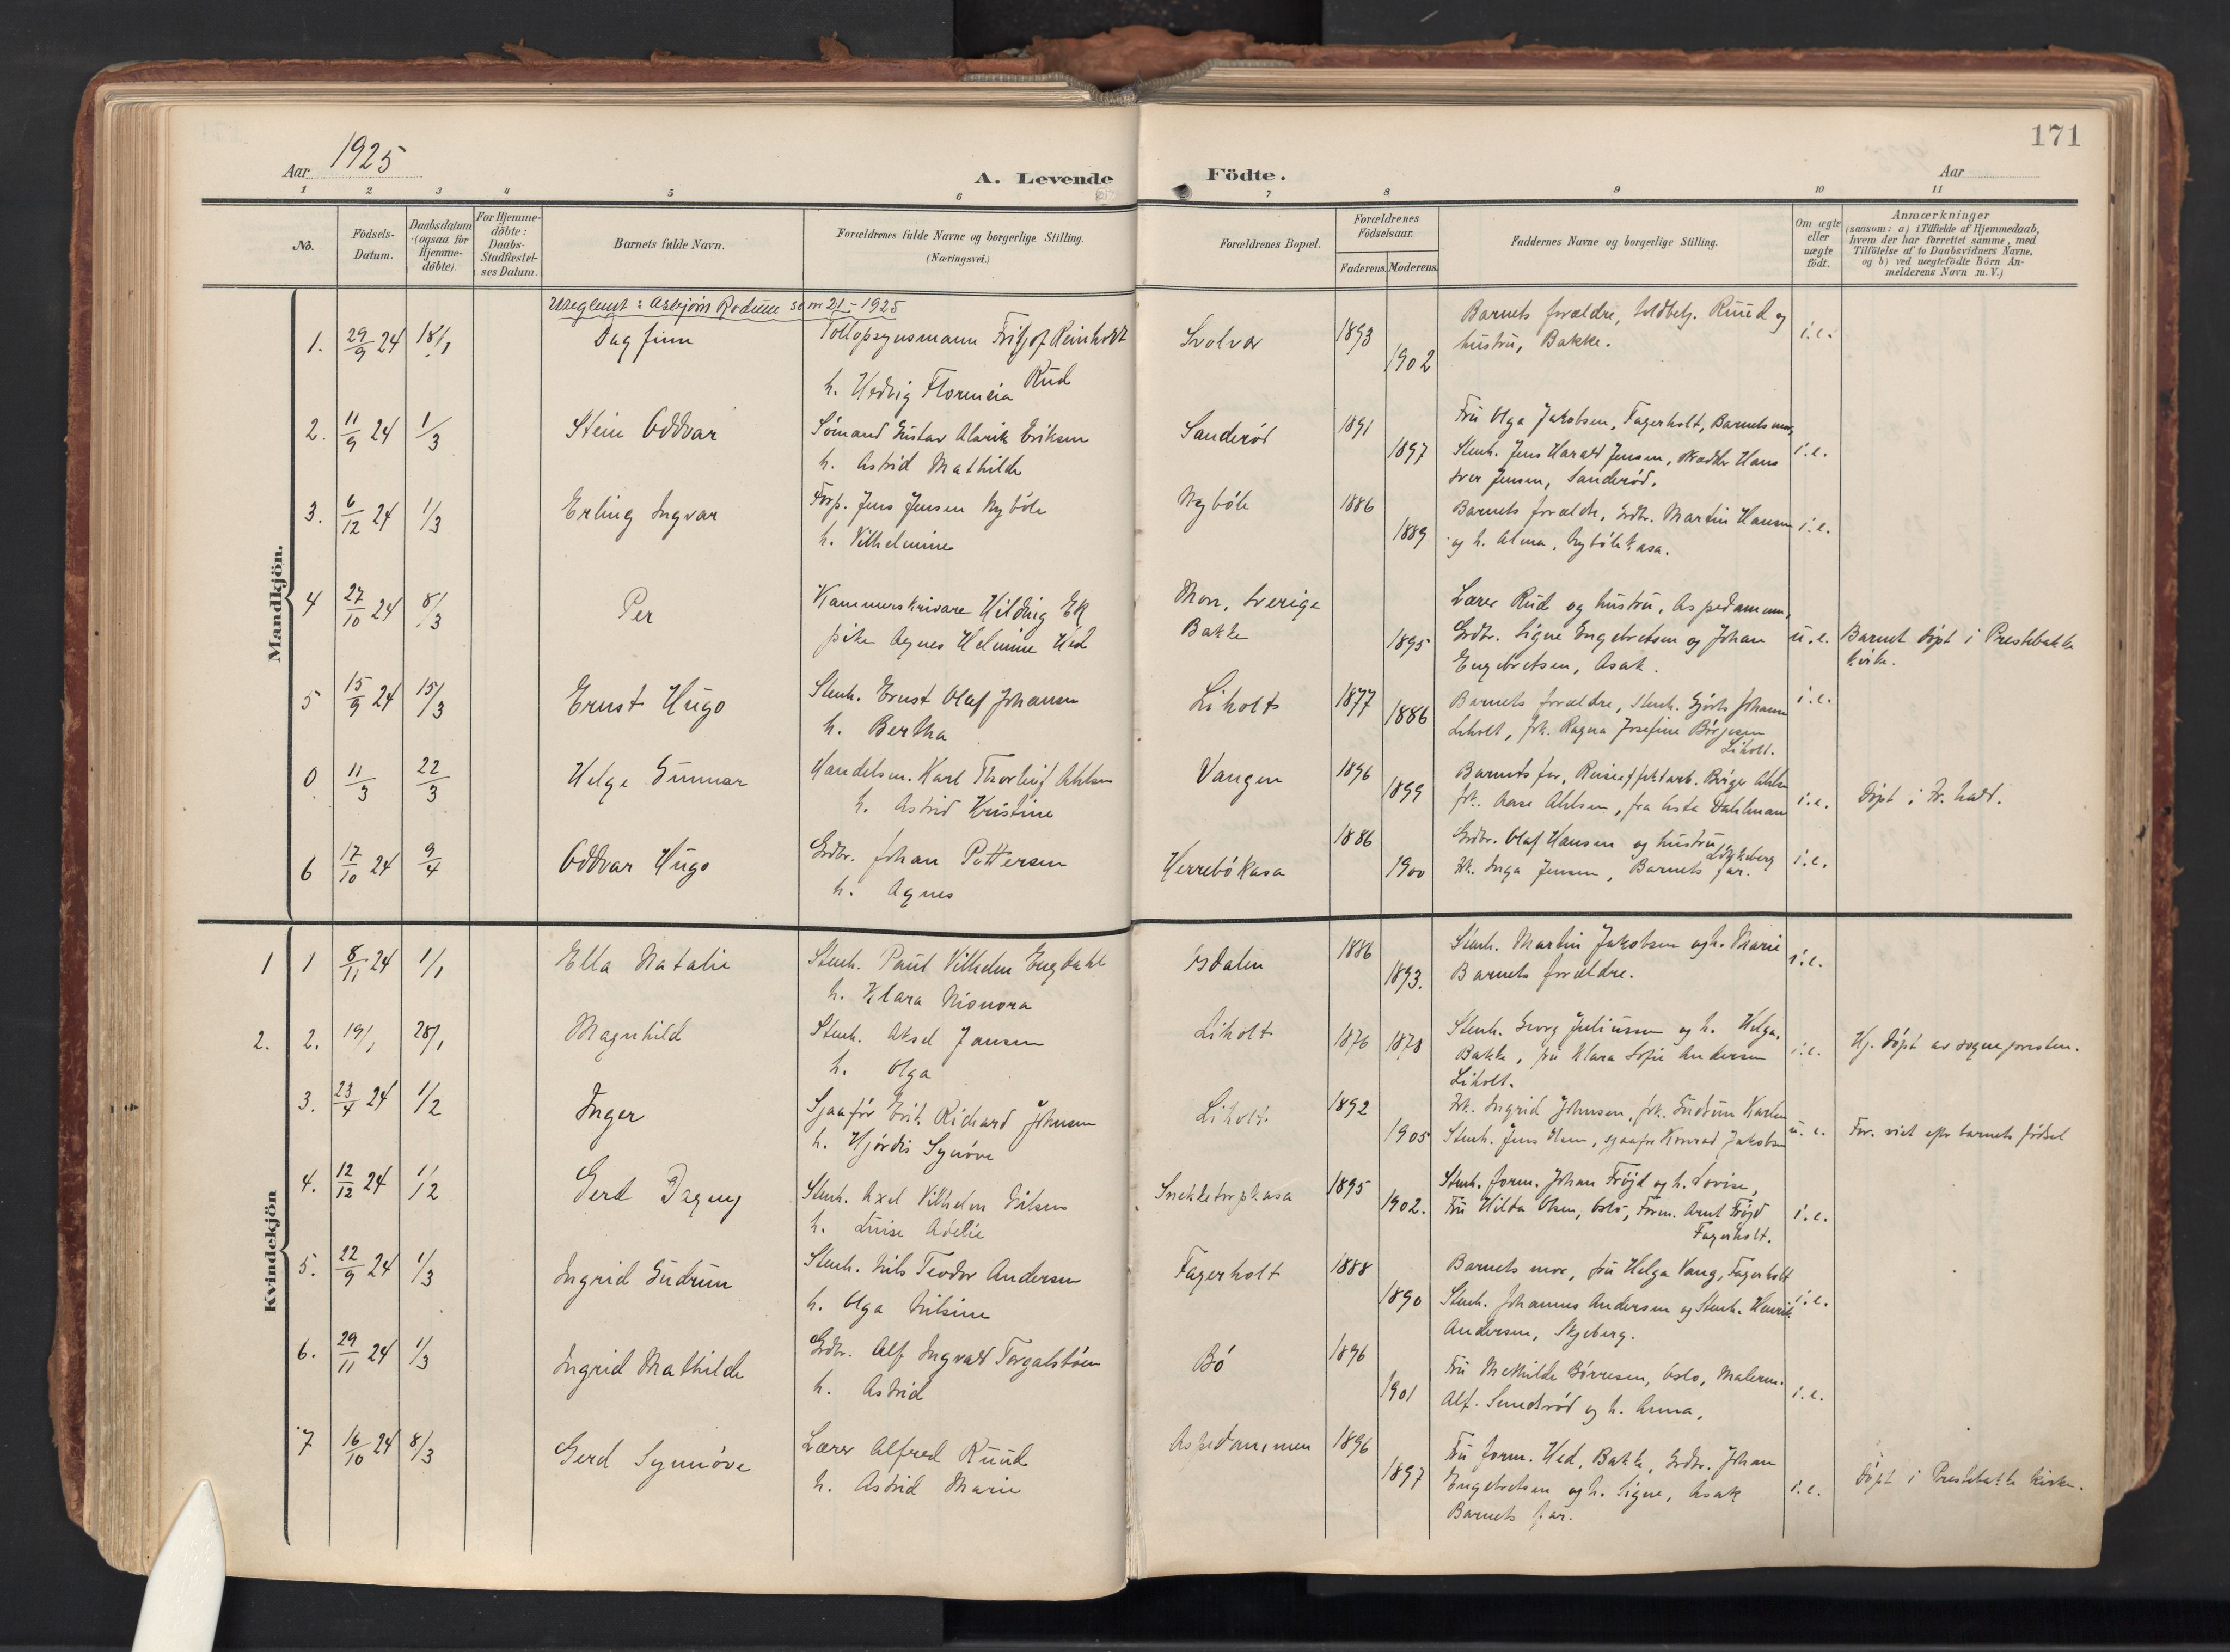 171
Aar 1925
A. Levende
Födte.
Aar
1 2 3 4 5 6 7 8 9 10 11
No.
Födsels-
Datum.
Daabsdatum
(ogsaa for
Hjemme-
döbte).
For Hjemme-
döbte:
Daabs-
Stadfæstel-
ses Datum.
Barnets fulde Navn.
Forældrenes fulde Navne og borgerlige Stilling.
(Næringsvei.)
Forældrenes Bopæl.
Forældrenes
Födselsaar.
Faderens. Moderens.
Faddernes Navne og borgerlige Stilling.
Om ægte
eller
uægte
födt.
Anmærkninger
(saasom: a) i Tilfælde af Hjemmedaab,
hvem der har forrettet samme, med
Tilföielse af to Daabsvidners Navne,
og b) ved uægtefödte Börn An-
melderens Navn m. V.)
Mandkjön.
Uteglemt: Asbjørn se nr 21 - 1925
1. 29/9 24 18/1 Dagfinn Tollopsynsmann Fritjof Reinholdt Svolvær 1893 Barnets forældre, Ruud og i.e.
h. Hedvig Rud 1902 hustru, Bakke.
2. 11/9 24 1/3 Stein Oddvar Sömand Gustav Alarik Eriksen Sanderöd 1891 Fru Olga Jakobsen, Fagerholt, Barnets mor,
h. Astrid Mathilde 1897 Stenh. Jens Harald Jensen, Hans i.e.
Iver Jensen, Sanderöd.
3. 6/12 24 1/3 Erling Ingvar Forp. Jens Jensen Nyböle Nyböle 1886 Barnets forældre, Grdbr. Martin Hansen i.e.
h. Vilhelmine 1889 og h. Alma, Nybölekasa.
4 27/10 24 8/3 Per Kammerskrivare Hilding Ek Mon, Sverige Lærer Rud og hustru, Aspedammen,
pike Agnes Helmine Hed Bakke 1895 Grdbr. Signe Engebretsen og Johan u.e. Barnet döpt i Prestebakke
Engebretsen, Asak. kirke.
5 15/9 24 15/3 Ernst Hugo Stenh. Ernst Olaf Johansen Liholt 1877 Barnets forældre, Stenh. Johansen i.e.
h. Bertha 1886 Liholt, frk. Ragna Josefine Börjesen
Liholt.
0 11/3 22/3 Helge Gunnar Handelsm. Karl Thorleif Ahlsen Vangen 1896 Barnets far, Birger Ahlsen
h. Astrid Kristine 1899 frk. Aase Ahlsen, fra Asta Dahlman i.e. Döpt i Fr. hald.
6 17/10 24 9/4 Oddvar Hugo Grdbr. Johan Pettersen Herrebökasa 1886 Grdbr. Olaf Hansen og hustru, Lökkeberg
h. Agnes 1900 Frk. Inga Jensen, Barnets far. i.e.
Kvindekjön
1 1 8/11 24 1/1 Ella Natalie Stenh. Paul Vilhelm Engdahl Isdalen 1886 Stenh. Martin Jakobsen og h. Marie i.e.
h. Klara 1893. Barnets forældre.
2. 2. 19/1 28/1 Magnhild Stenh. Aksel Jansen Liholt 1876 1878 Stenh. Georg Juliussen og h. Helga,
h. Olga Bakke, fru Klara Sofie Andersen i.e. Hj. döpt av sognepresten.
Liholt.
3. 23/4 24 1/2 Inger Sjaaför Erik Richard Johnsen Liholt 1892 Frk. Ingrid Johnsen, frk. Gudrun Karlsen
h. Hjördis Synöve 1905 Stenh. Jens Olsen, sjaafør Konrad Jakobsen u.e. For. viet efter barnets födsel
4. 12/12 24 1/2 Gerd Dagny Stenh. Axel Vilhelm Nilsen Snekketorpkasa 1895 Stenh. form. Johan Fröjd og h. Lovise,
h. Luise Adelie 1902. Fru Hilda Olsen, Oslo, Form. Arnt Fröjd i.e.
Fagerholt.
5. 22/9 24 1/3 Ingrid Gudrun Stenh. Nils Teodor Andersen Fagerholt 1888 Barnets mor, fru Helga Vang, Fagerholt
h. Olga Nilsine 1890 Stenh. Johannes Andersen og Stenh. Henrik i.e.
Andersen, Skjeberg.
6. 29/11 24 1/3 Ingrid Mathilde Grdbr. Alf Ingvald Torgalsböen Bö 1896 Fru Mathilde Börresen, Oslo, Malerm.
h. Astrid 1901 Alf. Sundsröd og h. Anna, i.e.
7 16/10 24 8/3 Gerd Synnöve Lærer Alfred Ruud Aspedammen 1896 Fru form. Hed, Bakke, Grdbr. Johan
h. Astrid Marie 1897 Engebretsen og h. Signe, Asak i.e. Döpt i Prestebakke kirke.
Barnets far.